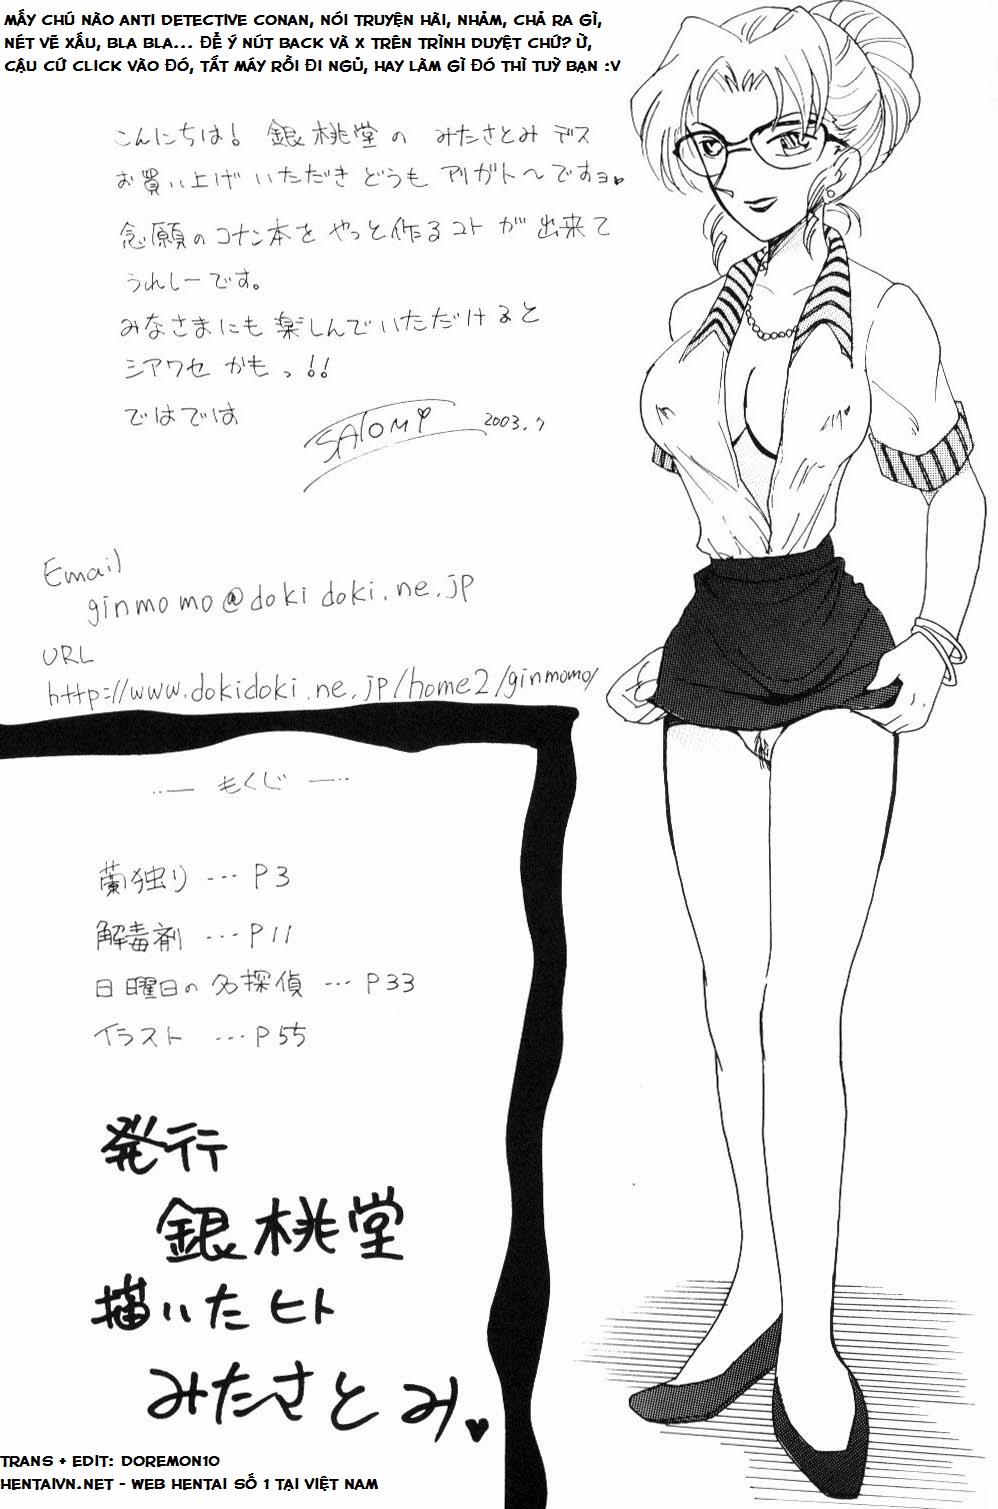 MẤY CHÚ NÀO ANTI DETECTIVE CONAN, NÓI TRUYỆN HÃI, NHẢM, CHẢ RA GÌ,
NÉT VẼ XẤU, BLA BLA... ĐỂ Ý NÚT BACK VÀ X TRÊN TRÌNH DUYỆT CHỨ? Ừ,
CẬU CỨ CLICK VÀO ĐÓ, TẮT MÁY RỒI ĐI NGỦ, HAY LÀM GÌ ĐÓ THÌ TUỲ BẠN :V
こんにちは! 銀桃堂の みたさとみ デス
お買い上げ いただき どうも アリガト〜ですョ♥
念願のコナン本を やっと作るコトが出来て
うれしーです。
みなさまにも楽しんでいただけると
シアワセ かもっ!!
ではでは
SATOMI 2003.7
Email
ginmomo@dokidoki.ne.jp
URL
http://www.dokidoki.ne.jp/home2/ginmomo/
もくじ
蘭独り ... P3
解毒剤 ... P11
日曜日の名探偵 ... P33
イラスト ... P55
発行
銀桃堂
描いたヒト
みたさとみ♥
TRANS + EDIT: DOREMON10
HENTAIVN.NET - WEB HENTAI SỐ 1 TẠI VIỆT NAM